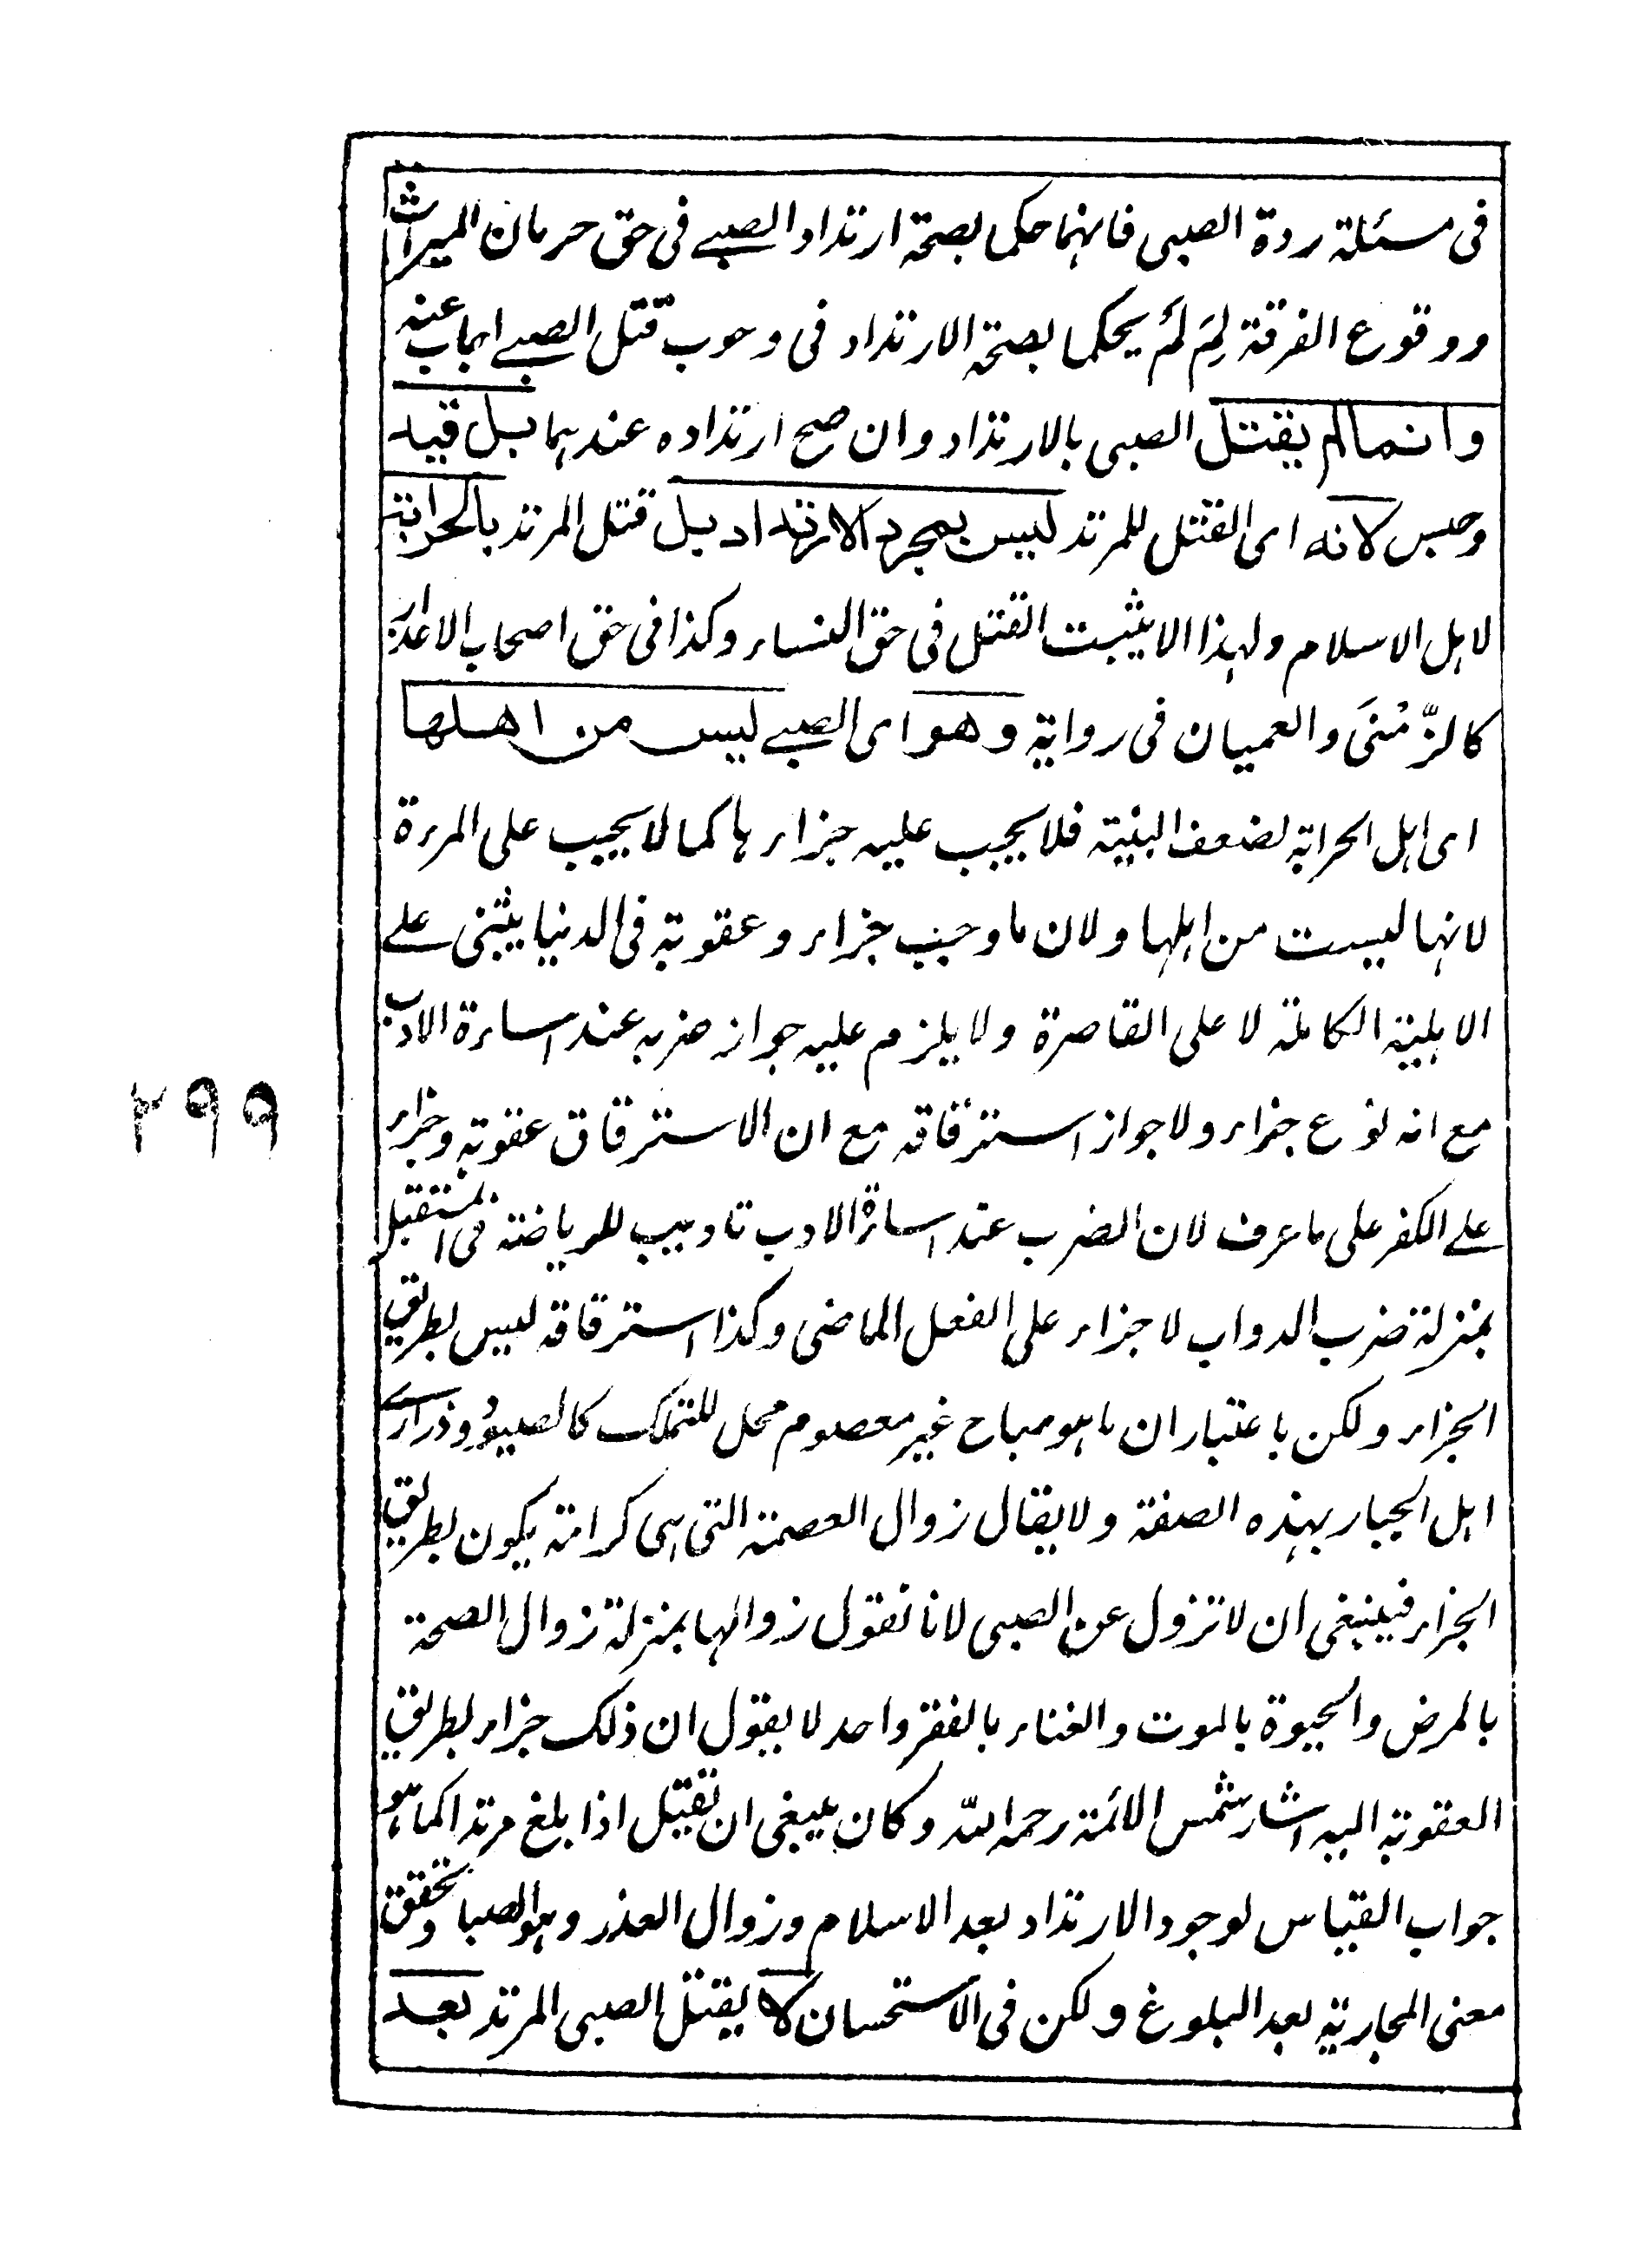 فى مسئلة ردة الصبى فانهما حكما بصحة ارتداد الصبے فى حق حرمان الميراث
ووقوع الفرقة لِمَ لَمْ يحكما بصحة الارتداد فى وجوب قتل الصبے اجاب عنه
وانما لم يقتل الصبى بالارتداد وان صح ارتداده عندهما بل قيد
وحبس لانه اى القتل للمرتد ليس بمجرد الارتداد بل قتل المرتد بالحرابة
لاهل الاسلام ولهذا لا يثبت القتل فى حق النساء وكذا فى حق اصحاب الاعذار
كالزَّمْنَى والعميان فى رواية وهو اى الصبے ليس من اهلها
اى اهل الحرابة لضعف البنية فلا يجب عليه جزاءها كما لا يجب على المرءة
لانها ليست من اهلها ولان ما وجب جزاء وعقوبة فى الدنيا يبتنى علے
الاهلية الكاملة لا على القاصرة ولا يلزم عليه جواز ضربه عند اساءة الادب
مع انه نوع جزاء ولا جواز استرقاقه مع ان الاسترقاق عقوبة وجزاء
علے الكفر على ما عرف لان الضرب عند اساءة الادب تاديب للرياضة فى المستقبل
بمنزلة ضرب الدواب لا جزاء على الفعل الماضى وكذا استرقاقه ليس بطريق
الجزاء ولكن باعتبار ان ما هو مباح غير معصوم محل للتملك كالصيود وذرارے
اهل الحرب بهذه الصفة ولا يقال زوال العصمة التى هى كرامة يكون بطريق
الجزاء فينبغى ان لا تزول عن الصبى لانا نقول زوالها بمنزلة زوال الصحة
بالمرض والحيوة بالموت والغناء بالفقر واحد لا يقول ان ذلك جزاء بطريق
العقوبة اليه اشار شمس الائمة رحمه الله وكان ينبغى ان يقتل اذا بلغ مرتدا كما هو
جواب القياس لوجود الارتداد بعد الاسلام وزوال العذر وهو الصبا وتحقق
معنى المحاربة بعد البلوغ ولكن فى الاستحسان لا يقتل الصبى المرتد بعد
٢٩٩